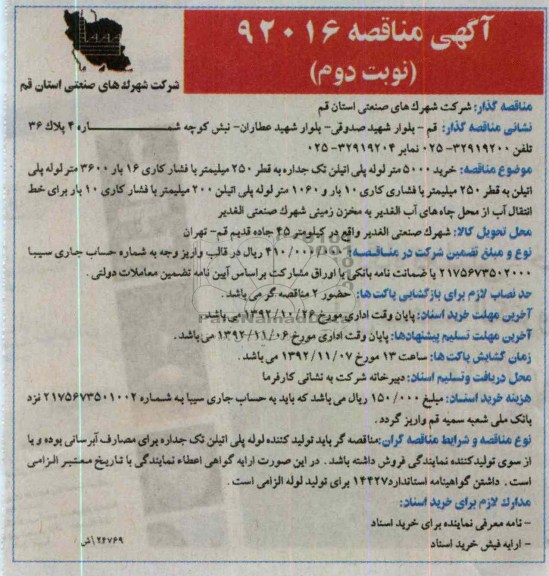 آگهی مناقصه ۹۲۰۱۶
(نوبت دوم)
شرکت شهرک های صنعتی استان قم
مناقصه گذار: شرکت شهرک های صنعتی استان قم
نشانی مناقصه گذار: قم - بلوار شهید صدوقی- بلوار شهید عطاران- نبش کوچه شماره ۴ پلاک ۳۶
تلفن ۳۲۹۱۹۲۰۰- ۰۲۵ نمابر ۳۲۹۱۹۲۰۴- ۰۲۵
موضوع مناقصه: خرید ۵۰۰۰ متر لوله پلی اتیلن تک جداره به قطر ۲۵۰ میلیمتر با فشار کاری ۱۶ بار ۳۶۰۰ متر لوله پلی
اتیلن به قطر ۲۵۰ میلیمتر با فشاری کاری ۱۰ بار و ۱۰۶۰ متر لوله پلی اتیلن ۲۰۰ میلیمتر با فشار کاری ۱۰ بار برای خط
انتقال آب از محل چاه های آب الغدیر به مخزن زمینی شهرک صنعتی الغدیر
محل تحویل کالا: شهرک صنعتی الغدیر واقع در کیلومتر ۴۵ جاده قدیم قم- تهران
نوع و مبلغ تضمین شرکت در مناقصه: ۴۱۰/۰۰۰/۰۰۰ ریال در قالب واریز وجه به شماره حساب جاری سیبا
۲۱۷۵۶۷۳۵۰۲۰۰۰ یا ضمانت نامه بانکی یا اوراق مشارکت براساس آیین نامه تضمین معاملات دولتی .
حد نصاب لازم برای بازگشایی پاکت ها: حضور ۲ مناقصه گر می باشد .
آخرین مهلت خرید اسناد: پایان وقت اداری مورخ ۱۳۹۲/۱۰/۲۶ می باشد.
آخرین مهلت تسلیم پیشنهادها: پایان وقت اداری مورخ ۱۳۹۲/۱۱/۰۶ می باشد .
زمان گشایش پاکت ها: ساعت ۱۳ مورخ ۱۳۹۲/۱۱/۰۷ می باشد .
محل دریافت وتسلیم اسناد: دبیرخانه شرکت به نشانی کارفرما
هزینه خرید اسناد: مبلغ ۱۵۰/۰۰۰ ریال می باشد که باید به حساب جاری سیبا به شماره ۲۱۷۵۶۷۳۵۰۱۰۰۲ نزد
بانک ملی شعبه سمیه قم واریز گردد .
نوع مناقصه و شرایط مناقصه گران:مناقصه گر باید تولید کننده لوله پلی اتیلن تک جداره برای مصارف آبرسانی بوده و یا
از سوی تولیدکننده نمایندگی فروش داشته باشد . در این صورت ارایه گواهی اعطاء نمایندگی با تاریخ معتبر الزامی
است . داشتن گواهینامه استاندارد۱۴۴۲۷ برای تولید لوله الزامی است .
مدارک لازم برای خرید اسناد:
- نامه معرفی نماینده برای خرید اسناد
- ارایه فیش خرید اسناد
۲۴۷۶۹/ش